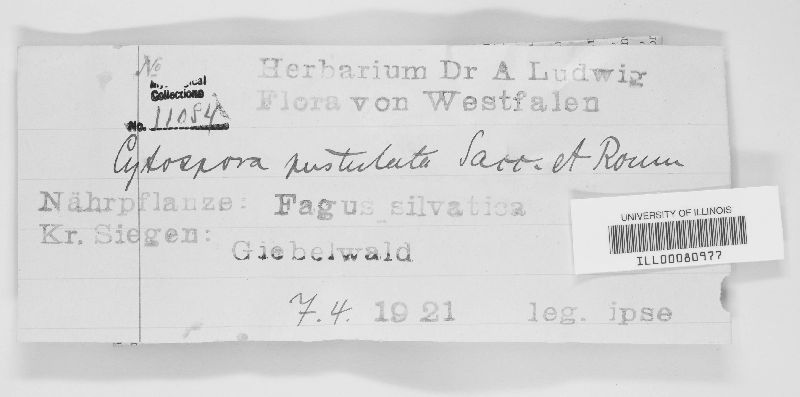 No
Herbarium Dr A Ludwig
Flora von Westfalen
Collections
No. 11084
Cytospora pustulata Sacc. et Roum
Nährpflanze: Fagus silvatica
Kr. Siegen:
Giebelwald
7.4. 1921 leg. ipse
UNIVERSITY OF ILLINOIS
ILL00080977